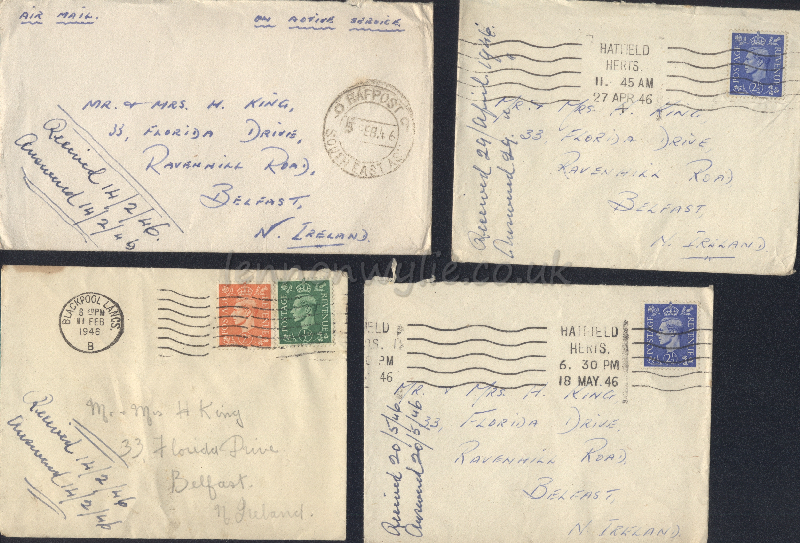 AIR MAIL.
ON ACTIVE SERVICE.
RAFPOST
FEB 46
SOUTH EAST
MR. & MRS. H. KING,
33, FLORIDA DRIVE,
RAVENHILL ROAD,
BELFAST,
N. IRELAND.
Received 14/2/46.
Answered 14/2/46
HATFIELD
HERTS.
11. 45 AM
27 APR 46
POSTAGE
REVENUE
Mr & Mrs H. KING
33 FLORIDA DRIVE
RAVENHILL ROAD
BELFAST,
N. IRELAND.
Received 29/April/1946.
Answered 29.
lennonwylie.co.uk
BLACKPOOL LANCS
PM
11 FEB
1946
B
POSTAGE
REVENUE
POSTAGE
REVENUE
Mr. Mrs H King
33 Florida Drive
Belfast.
N Ireland.
Received 14/2/46
Answered 14/2/46
IELD
S.
PM
46
HATFIELD
HERTS.
6. 30 PM
18 MAY. 46
POSTAGE
REVENUE
MR. & MRS. H. KING
33, FLORIDA DRIVE,
RAVENHILL ROAD,
BELFAST,
N. IRELAND.
Received 20/5/46.
Answered 20/5/46